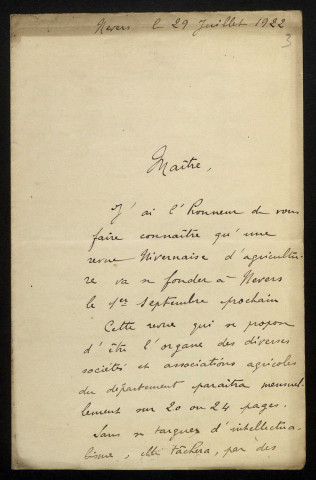 Nevers le 29 Juillet 1922
3
Maître,
J'ai l'honneur de vous
faire connaître qu'une
revue Nivernaise d'agricultu-
re va se fonder à Nevers
le 1er Septembre prochain
Cette revue qui se propose
d'être l'organe des diverses
sociétés et associations agricoles
du département paraîtra mensuel-
lement sur 20 ou 24 pages.
Sans se targuer d'intellectua-
lisme, elle tâchera, par des